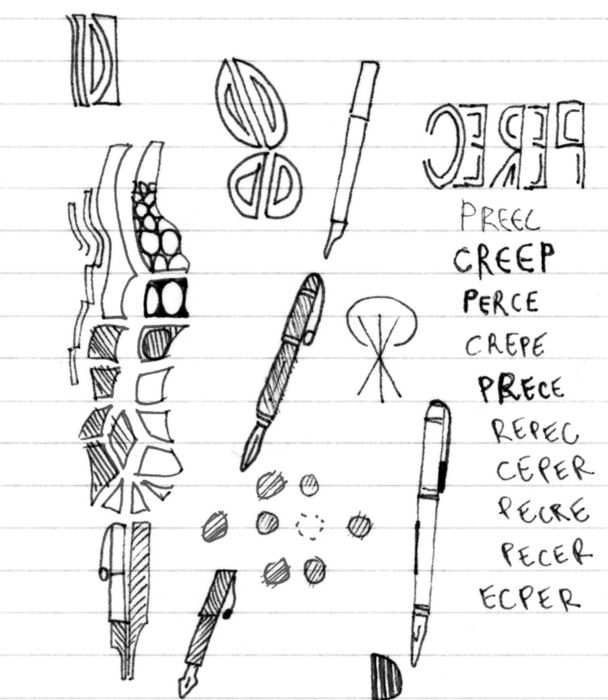 PEREC
PREEC
CREEP
PERCE
CREPE
PRECE
REPEC
CEPER
PECRE
PECER
ECPER